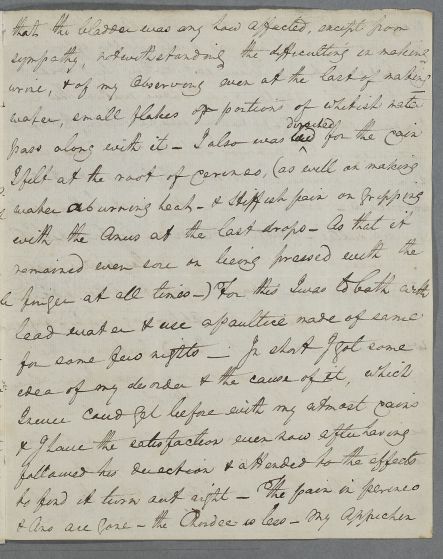 that the bladder was any how affected, except from
sympathy, notwithstanding the difficulting in making
urine, & of my Observing even at the last of making
water, small flakes or portions of whitish matr
pass along with it – I also was directed for the pain
I felt at the root of perineo, (as well on making
water a burning heat – & Stiffish pain on gripping
with the Anus at the last drops – As that it
remained even sore on being pressed with the
finger at all times –) For this I was to bath with
lead water & use a paultice made of same
for some few nights – In short I got some
idea of my disorder & the cause of it, which
I never coud get before with my utmost pains
& I have the satisfaction even now after having
followed his direction & attended to the effects
to find it turn out right – The pain in perineo
& Ano are gone – the Chordee is less – My